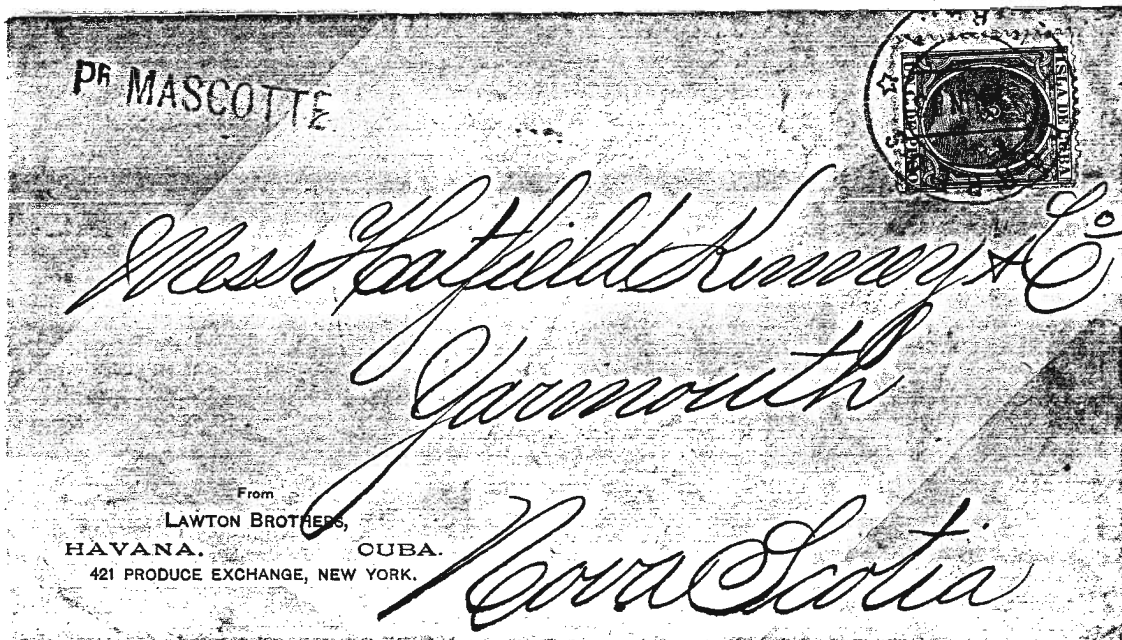 PR MASCOTTE
ISLA DE CUBA
Mess Hatfield Kinney & Co
Yarmouth
Nova Scotia
From
LAWTON BROTHERS,
HAVANA. CUBA.
421 PRODUCE EXCHANGE, NEW YORK.